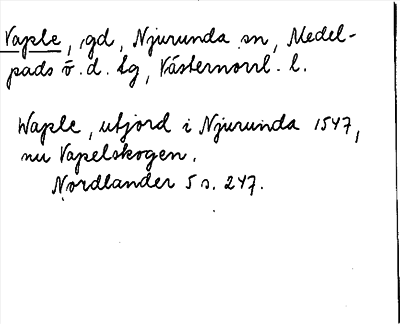 Vaple, gd, Njurunda sn, Medel-
pads ö. d. tg, Västernorrl. l.
Waple, utjord i Njurunda 1547,
nu Vapelskogen.
Nordlander 5 s. 247.